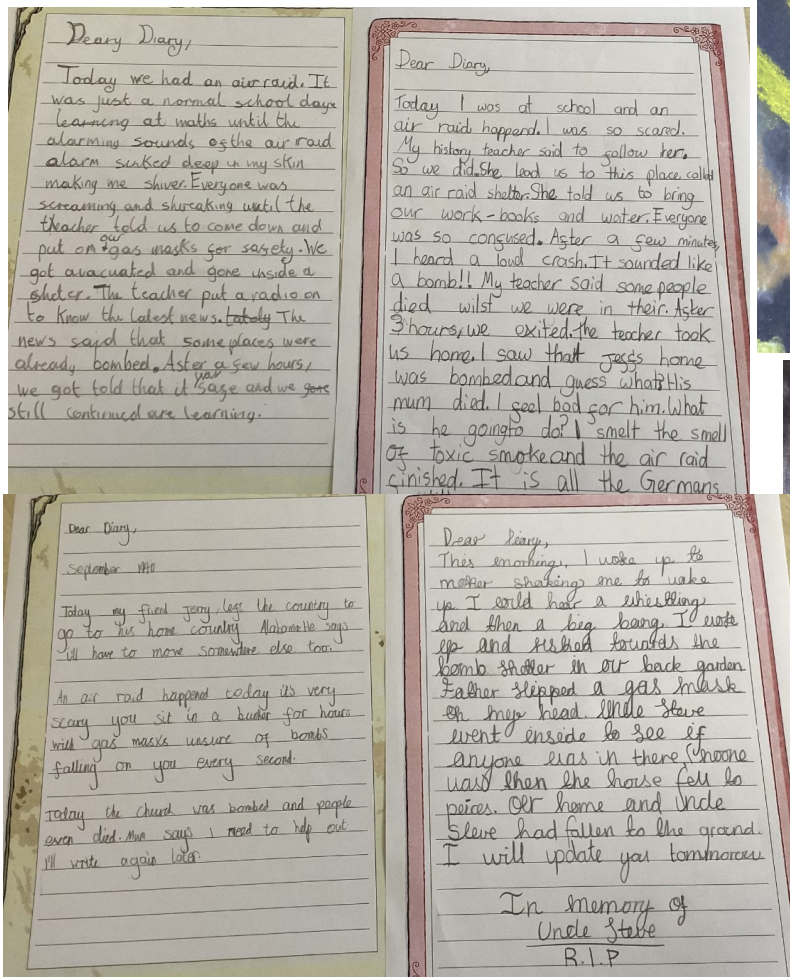 Deary Diary,
Today we had an air raid. It
was just a normal school daye
learning at maths until the
alarming sounds of the air raid
alarm sinked deep in my skin
making me shiver. Everyone was
screaming and shreaking until the
theacher told us to come down and
put on our gas masks for safety. We
got avacuated and gone inside a
shelter. The teacher put a radio on
to know the latest news. The
news said that some places were
already bombed. After a few hours,
we got told that it was safe and we
still continued are learning.
Dear Diary,
Today I was at school and an
air raid happend. I was so scared.
My history teacher said to follow her.
So we did. She lead us to this place called
an air raid shelter. She told us to bring
our work-books and water. Everyone
was so confused. After a few minutes,
I heard a loud crash. It sounded like
a bomb!! My teacher said some people
died wilst we were in their. After
3 hours, we exited. the teacher took
us home. I saw that Jeff's home
was bombed and guess what? His
mum died. I feel bad for him. What
is he going to do? I smelt the smell
of toxic smoke and the air raid
finished. It is all the Germans
Dear Diary,
September 1940
Today my friend Jerry, left the country to
go to his home country Alabama. He says
i'll have to move somewhere else too.
An air raid happened today its very
scary you sit in a bunker for hours
with gas masks unsure of bombs
falling on you every second.
Today the church was bombed and people
even died. Mum says I need to help out
I'll write again later.
Dear Diary,
This morning, I woke up to
mother shaking me to wake
up. I could hear a whistling
and then a big bang. I woke
up and rushed towards the
bomb shelter in our back garden
Father slipped a gas mask
on my head. Uncle Steve
went inside to see if
anyone was in there, (noone
was) then the house fell to
peices. Our home and Uncle
Steve had fallen to the ground.
I will update you tommorow
In memory of
Uncle Steve
R.I.P